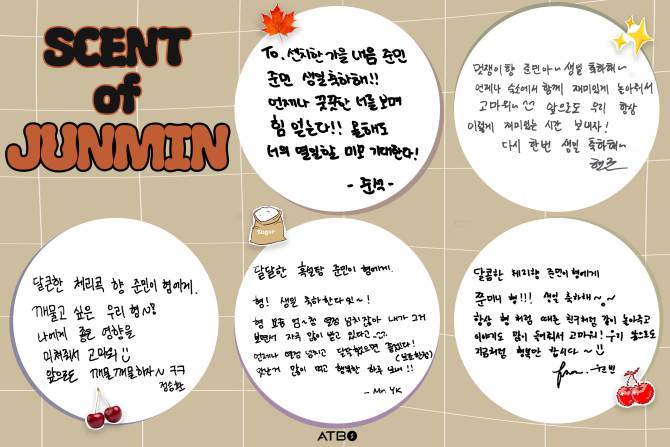 SCENT
of
JUNMIN
To. 선선한 가을 내음 준민
준민 생일축하해!!
언제나 꿋꿋한 너를 보며
힘 얻는다!! 올해도
너의 열일할 미모 기대한다!
- 준석 -
멋쟁이향 준민아~ 생일 축하해~
언제나 숙소에서 함께 재미있게 놀아줘서
고마워~ 앞으로도 우리 항상
이렇게 재미있는 시간 보내자!
다시 한번 생일 축하해~
달큰한 체리콕 향 준민이 형에게.
깨물고 싶은 우리 형~
나에게 좋은 영향을
미쳐줘서 고마워
앞으로도 깨물깨물하자~ ㅋㅋ
정승환
Sugar
달달한 흑설탕 준민이 형에게.
형! 생일 축하한다잉~!
형 요즘 엄~청 열정 넘치잖아 내가 그거
보면서 자극 많이 받고 있다고
언제나 열정 넘치고
맛난거 많이 먹고 행복한 하루 보내!!
- Mr. YK
달콤한 체리향 준민이형에게
준미니 형!!! 생일 축하해~
항상 형처럼 때론 친구처럼 같이 놀아주고
이야기도 많이 들어줘서 고마워! 우리 앞으로도
지금처럼 행복만 합시다~
from.
ATBO